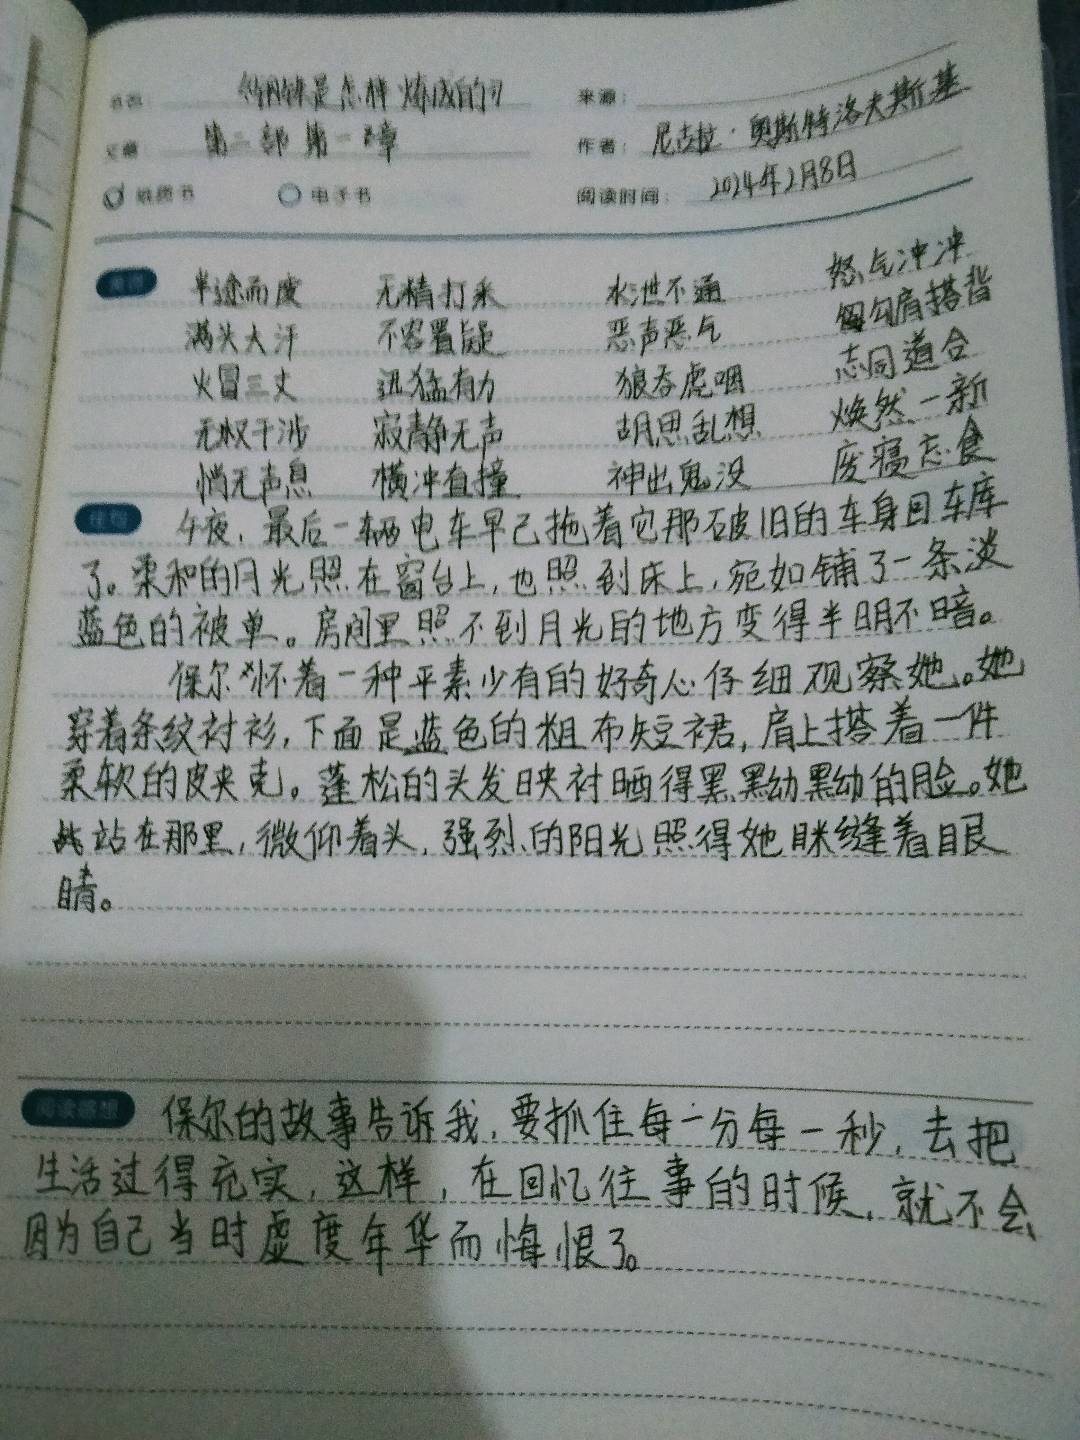 书名： 《钢铁是怎样炼成的》 来源：
文章： 第二部 第一章 作者： 尼古拉·奥斯特洛夫斯基
纸质书 电子书 阅读时间： 2024年2月8日
美词 半途而废 无精打采 水泄不通 怒气冲冲
满头大汗 不容置疑 恶声恶气 勾肩搭背
火冒三丈 迅猛有力 狼吞虎咽 志同道合
无权干涉 寂静无声 胡思乱想 焕然一新
悄无声息 横冲直撞 神出鬼没 废寝忘食
佳句 午夜，最后一辆电车早已拖着它那破旧的车身回车库
了。柔和的月光照在窗台上，也照到床上，宛如铺了一条淡
蓝色的被单。房间里照不到月光的地方变得半明不暗。
保尔怀着一种平素少有的好奇心仔细观察她。她
穿着条纹衬衫，下面是蓝色的粗布短裙，肩上搭着一件
柔软的皮夹克。蓬松的头发映衬晒得黑黝黝的脸。她
站在那里，微仰着头，强烈的阳光照得她眯缝着眼
睛。
阅读感想 保尔的故事告诉我，要抓住每一分每一秒，去把
生活过得充实，这样，在回忆往事的时候，就不会
因为自己当时虚度年华而悔恨了。